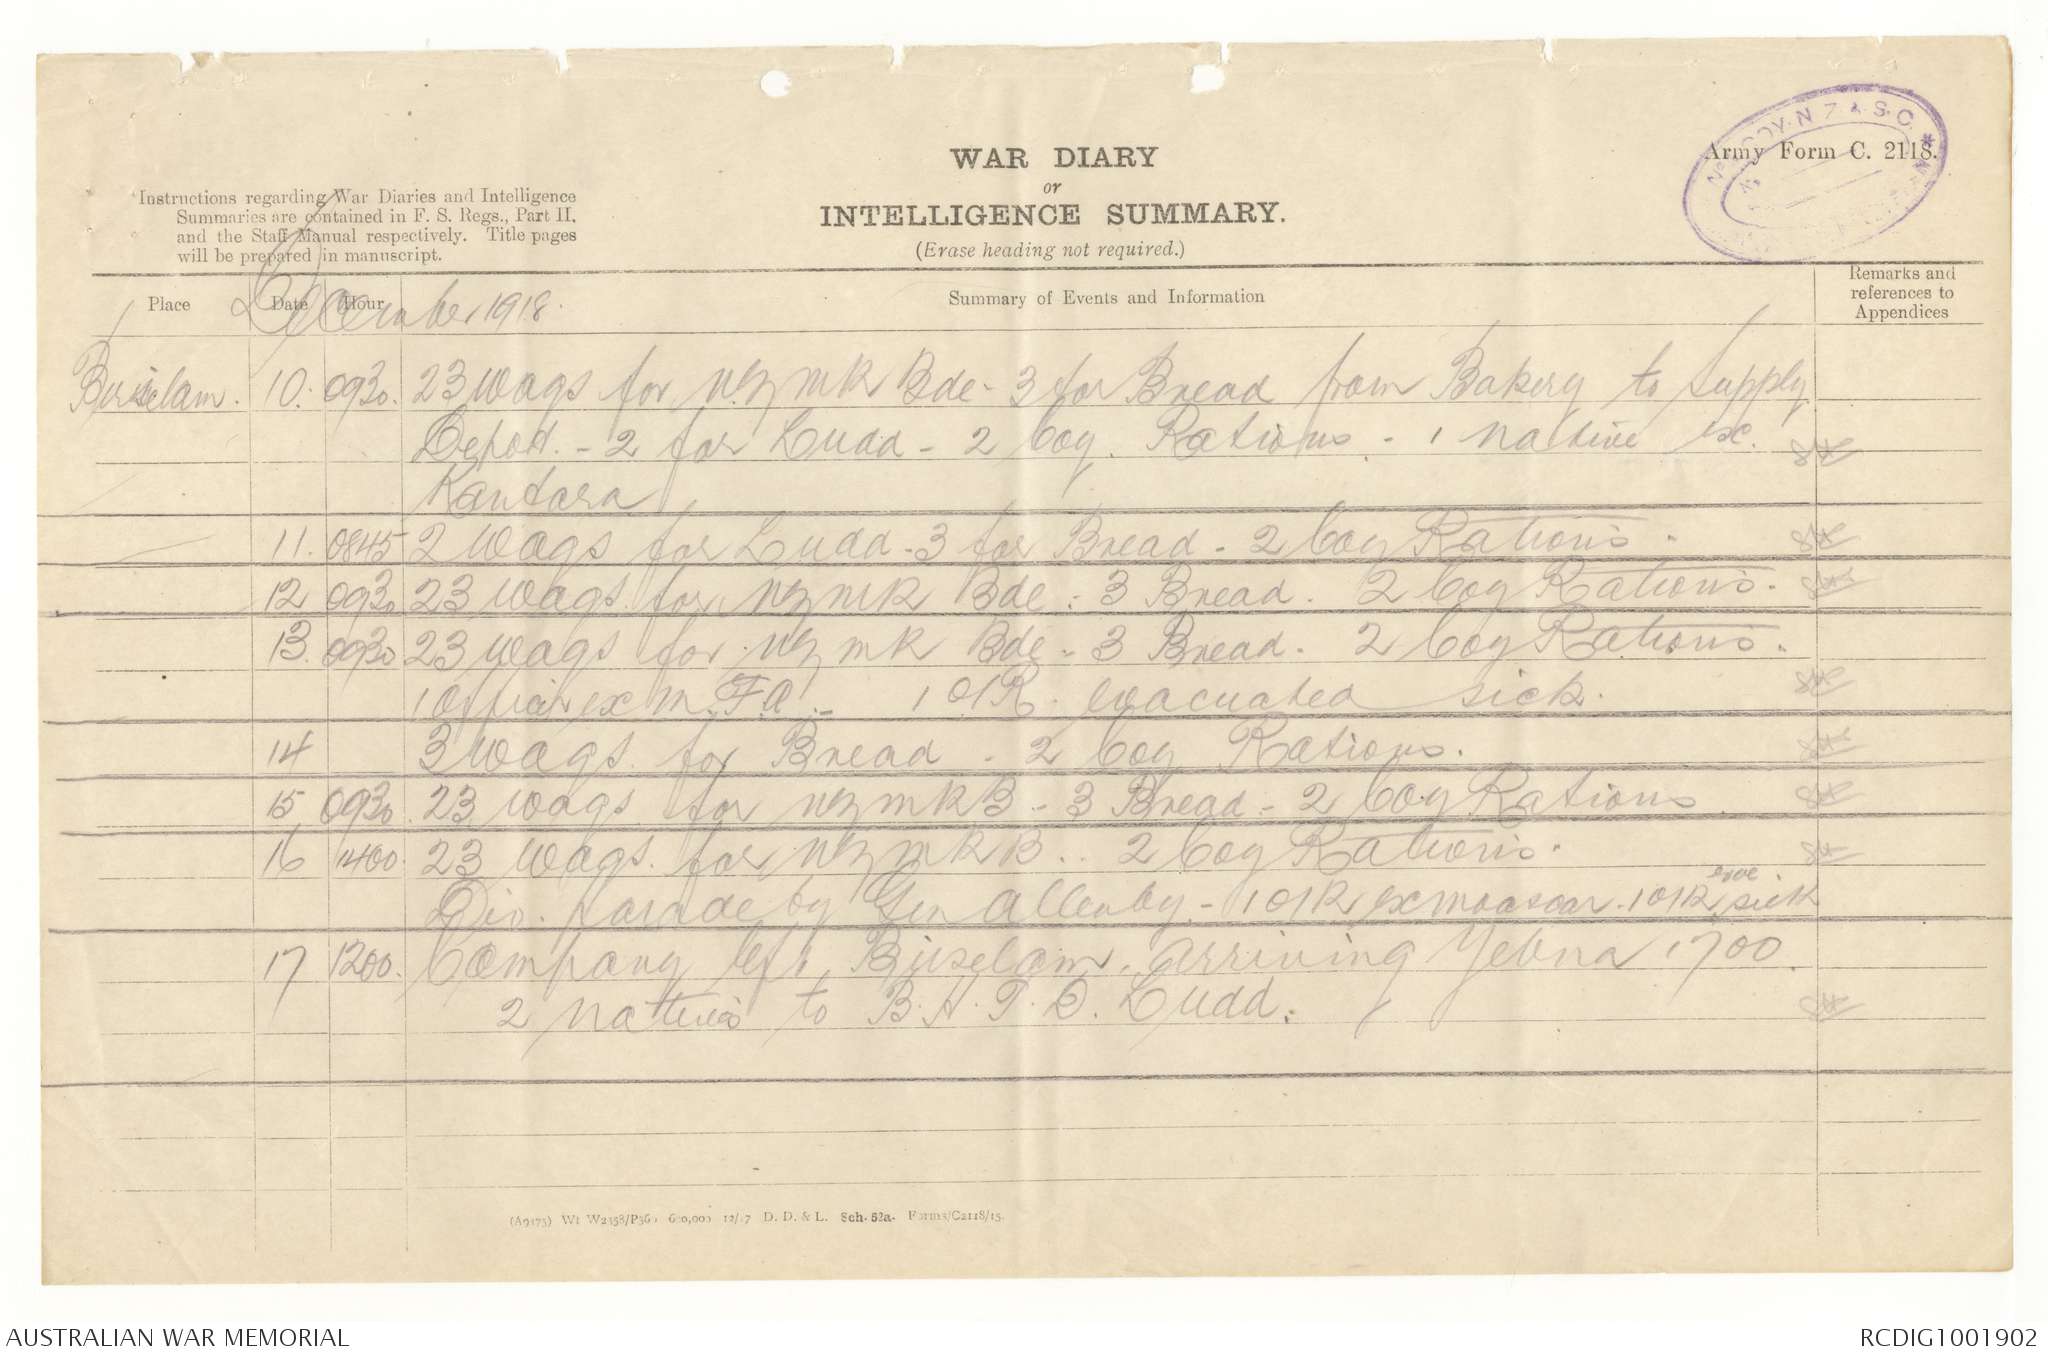 WAR DIARY
or
INTELLIGENCE SUMMARY.
(Erase heading not required.)
Army Form C. 2118.
Instructions regarding War Diaries and Intelligence
Summaries are contained in F. S. Regs., Part II,
and the Staff Manual respectively. Title pages
will be prepared in manuscript.
Place Date Hour Summary of Events and Information Remarks and references to Appendices
December 1918.
10. 0930. 23 Wags for N.Z.M.R Bde - 3 for Bread from Bakery to Supply
Depot. - 2 for Ludd - 2 Coy. Rations - 1 native
Kantara
11. 0845 2 Wags for Ludd - 3 for Bread - 2 Coy Rations.
12 0930 23 Wags for NZMR Bde - 3 Bread. 2 Coy Rations.
13. 0930 23 Wags for NZMR Bde - 3 Bread. 2 Coy Rations.
1 Officer ex M.F.A. - 1 O/R. evacuated sick.
14 3 Wags. for Bread - 2 Coy Rations.
15 0930. 23 Wags for NZMRB - 3 Bread - 2 Coy Rations.
16 1400. 23 Wags. for NZMRB.. 2 Coy Rations.
evac
Div. parade by Gen Allenby - 1 O/R ex Moascar. 1 O/R sick
17 1200. Company left Buselam, arriving Yebna 1700.
2 Natives to B.H.T.D. Ludd.
(A9175) Wt W2358/P360 600,000 12/17 D. D. & L. Sch. 52a. Forms/C2118/15.
AUSTRALIAN WAR MEMORIAL
RCDIG1001902